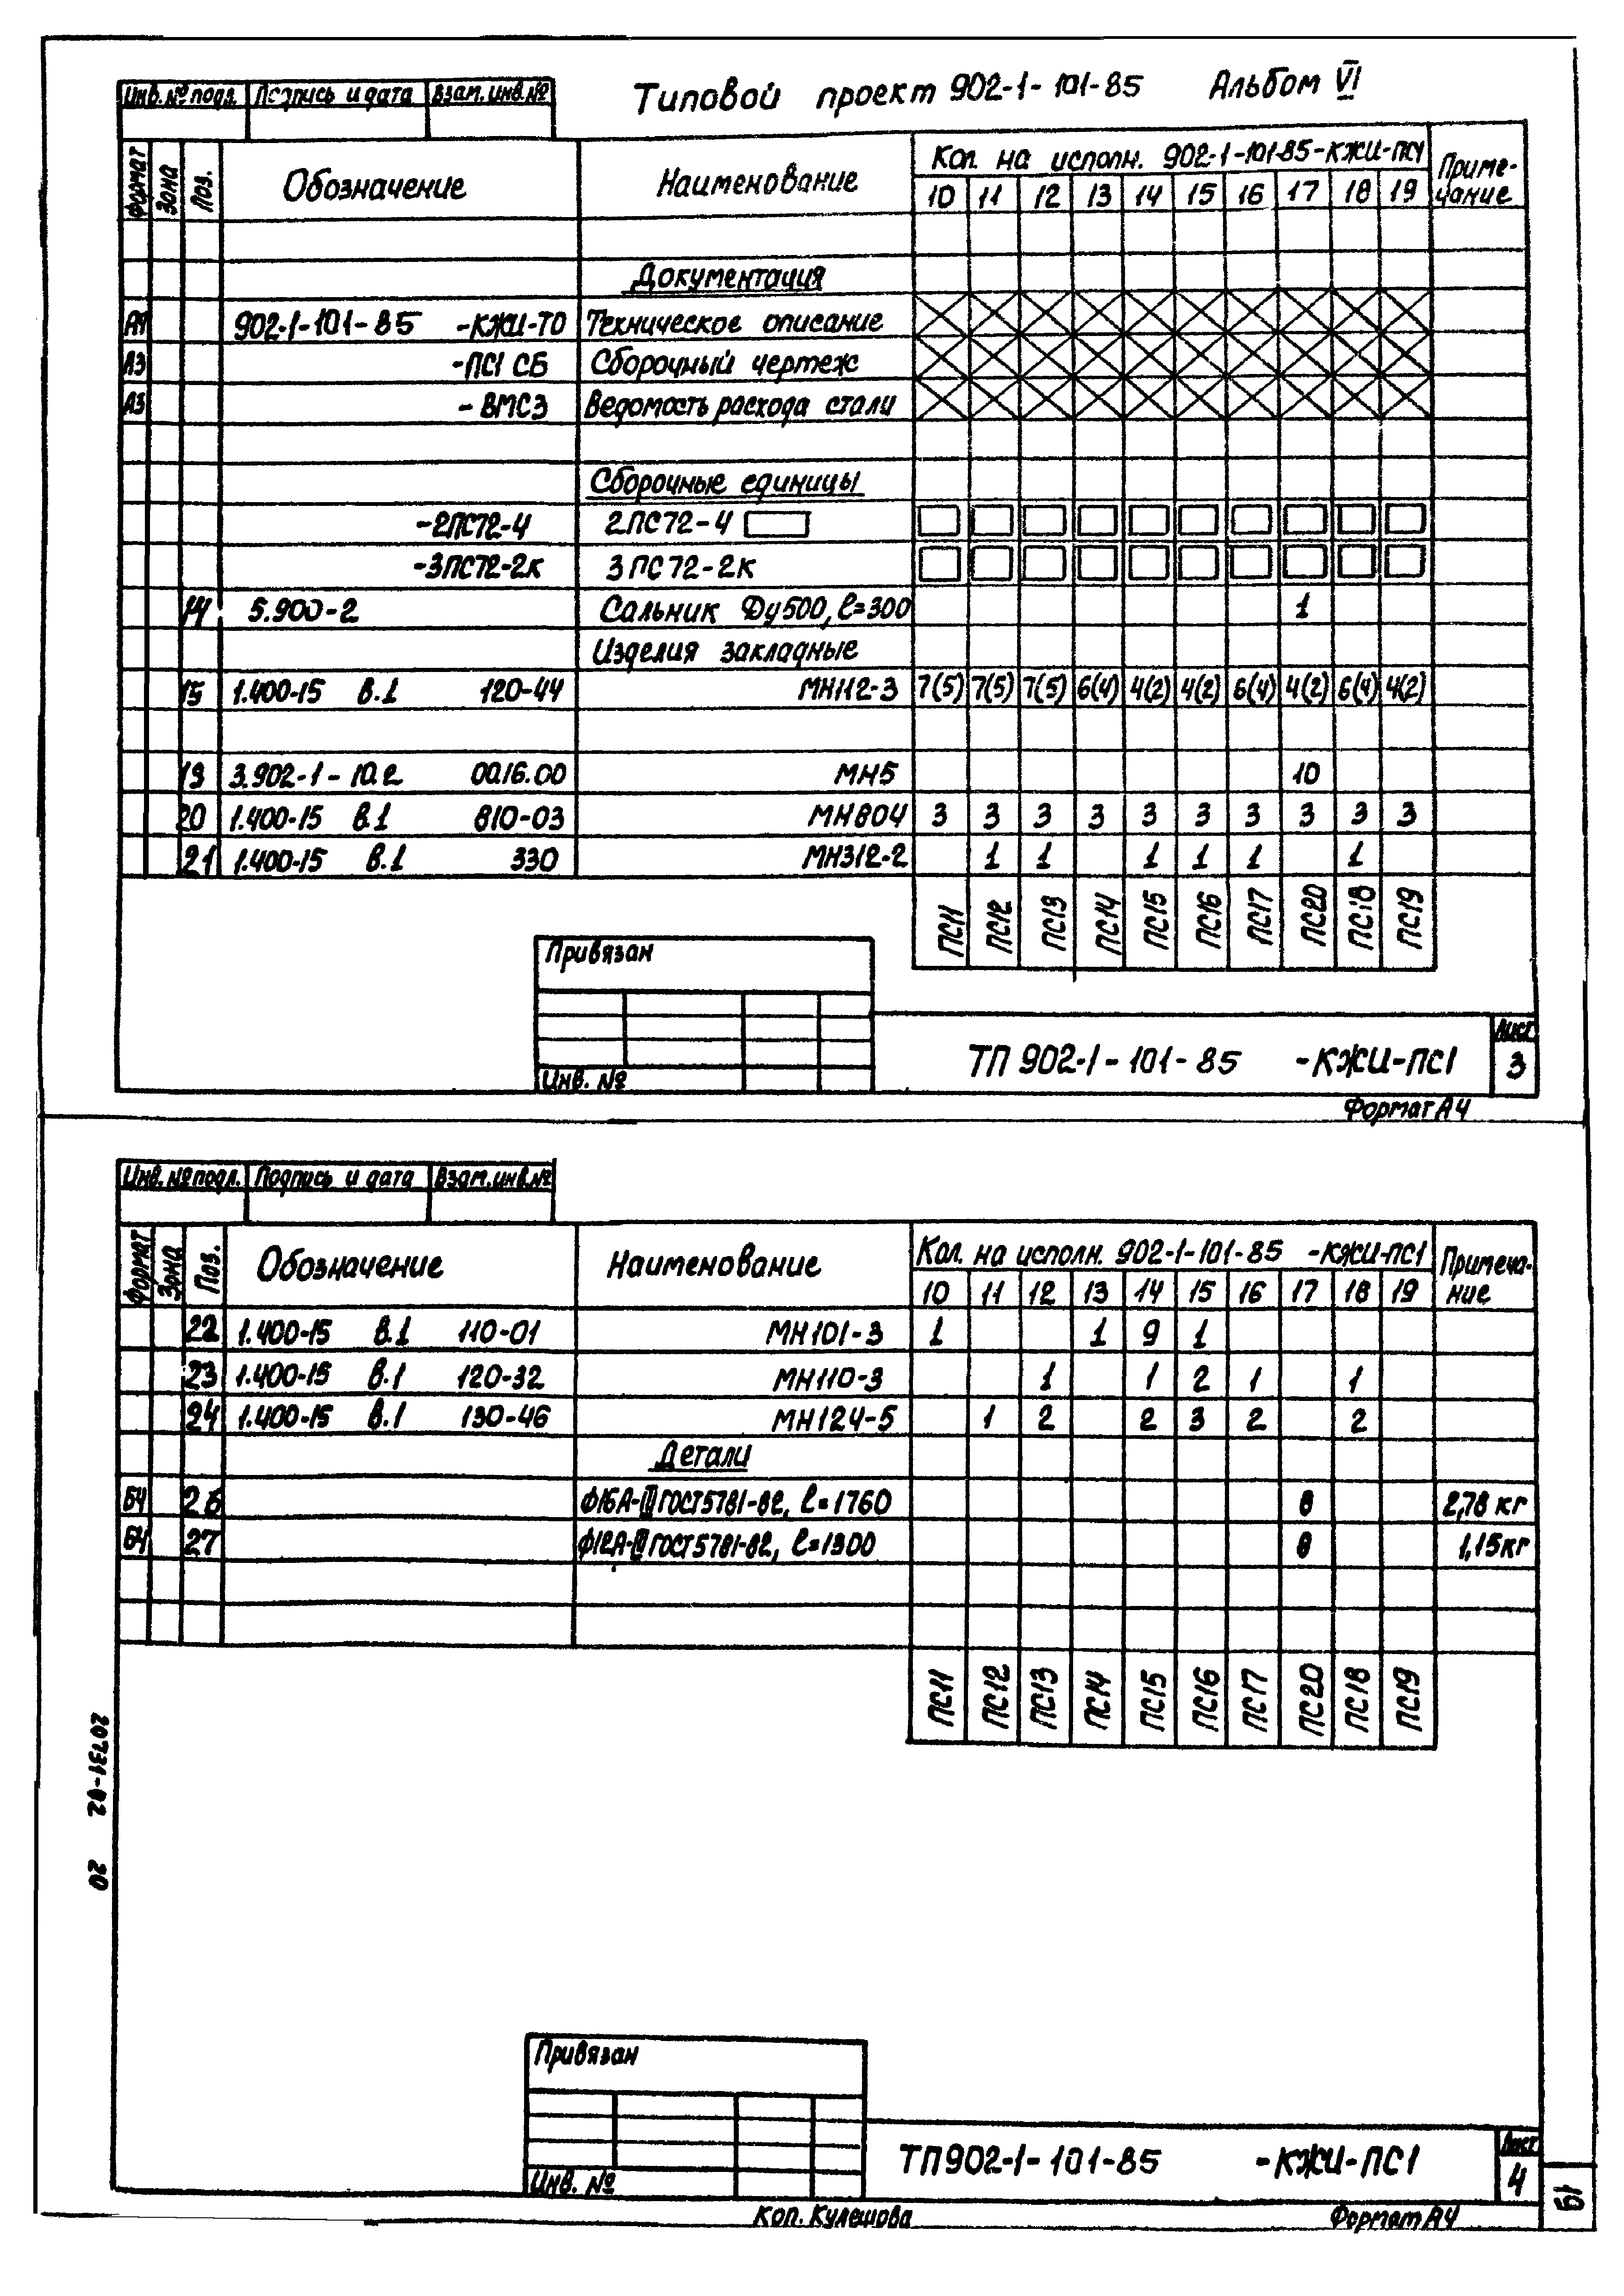 Типовой проект 902-1-101-85 Альбом VI
Инв. № подл. Подпись и дата Взам. инв. №
Формат Зона Поз. Обозначение Наименование Кол. на исполн. 902-1-101-85-КЖИ-ПС1 Примечание
10 11 12 13 14 15 16 17 18 19
Документация
А4 902-1-101-85 -КЖИ-ТО Техническое описание
А3 -ПС1 СБ Сборочный чертеж
А3 - ВМС3 Ведомость расхода стали
Сборочные единицы
-2ПС72-4 2ПС72-4
-3ПС72-2к 3ПС72-2к
14 5.900-2 Сальник Ду500, ℓ=300 1
Изделия закладные
15 1.400-15 в.1 120-44 МН112-3 7(5) 7(5) 7(5) 6(4) 4(2) 4(2) 6(4) 4(2) 6(4) 4(2)
19 3.902-1-10.2 00.16.00 МН5 10
20 1.400-15 в.1 810-03 МН804 3 3 3 3 3 3 3 3 3 3
21 1.400-15 в.1 330 МН312-2 1 1 1 1 1 1
ПС11 ПС12 ПС13 ПС14 ПС15 ПС16 ПС17 ПС20 ПС18 ПС19
Привязан
Инв. №
ТП 902-1-101-85 -КЖИ-ПС1
Лист
3
Формат А4
Инв. № подл. Подпись и дата Взам. инв. №
Формат Зона Поз. Обозначение Наименование Кол. на исполн. 902-1-101-85 -КЖИ-ПС1 Примечание
10 11 12 13 14 15 16 17 18 19
22 1.400-15 в.1 110-01 МН101-3 1 1 9 1
23 1.400-15 в.1 120-32 МН110-3 1 1 2 1 1
24 1.400-15 в.1 130-46 МН124-5 1 2 2 3 2 2
Детали
БЧ 26 ф16А-III ГОСТ5781-82, ℓ=1760 8 2,78 кг
БЧ 27 ф12А-III ГОСТ5781-82, ℓ=1300 8 1,15 кг
ПС11 ПС12 ПС13 ПС14 ПС15 ПС16 ПС17 ПС20 ПС18 ПС19
20731-02 20
Привязан
Инв. №
ТП902-1-101-85 -КЖИ-ПС1
Лист
4
19
Коп. Кулешова
Формат А4